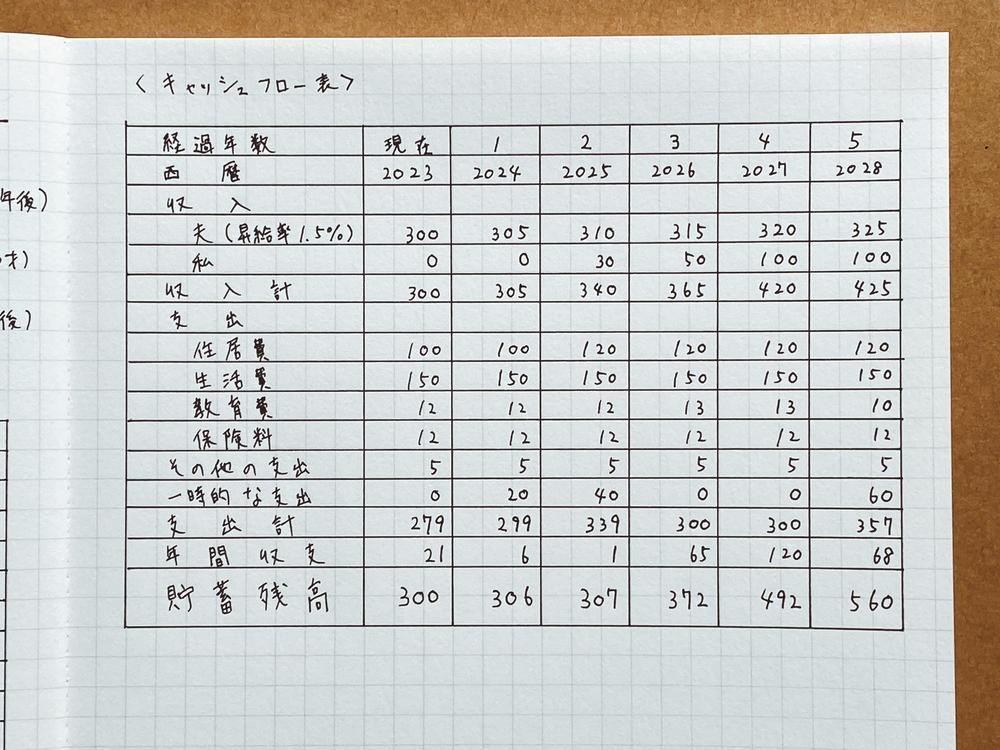 〈キャッシュフロー表〉
経過年数 現在 1 2 3 4 5
西暦 2023 2024 2025 2026 2027 2028
年後)
収入
夫(昇給率1.5%) 300 305 310 315 320 325
才) 私 0 0 30 50 100 100
収入計 300 305 340 365 420 425
後) 支出
住居費 100 100 120 120 120 120
生活費 150 150 150 150 150 150
教育費 12 12 12 13 13 10
保険料 12 12 12 12 12 12
その他の支出 5 5 5 5 5 5
一時的な支出 0 20 40 0 0 60
支出計 279 299 339 300 300 357
年間収支 21 6 1 65 120 68
貯蓄残高 300 306 307 372 492 560